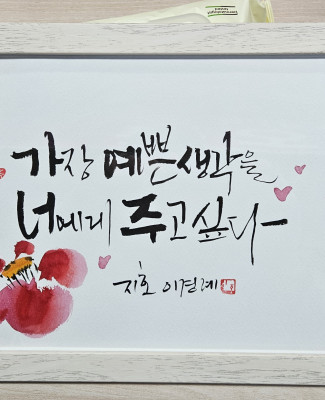 가장 예쁜 생각을
너에게 주고 싶다
지호 이경례